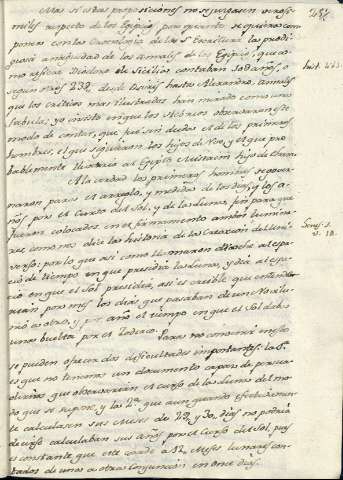 Mas si estas proposiciones no se juzgasen verosi-
miles respecto de los Egipcios, para quererse se quieren com-
poner con la Cronología de la S. Escritura la prodi-
giosa antigüedad de los annales de los Egipcios, que co-
mo refiere Diodoro de Sicilia contaban años, o
según otros 23 desde Osiris hasta Alexandro, annales
que los criticos mas ilustrados han mirado como unas
fabulas; yo insisto en que los Hebreos observaron este
modo de contar, que fue sin duda el de los primeros
hombres, el que siguieron los hijos de Noe, y el que pro-
bablemente llevaria al Egipto Mistraim hijo de Cham.
A la verdad los primeros hombres se gover-
naron para el arreglo, y medida de los dias, y los a-
ños, por el Curso del Sol, y de la Luna, a fin para que
fueron colocados en el firmamento ambos lumina-
res, como nos dice la historia de la Creacion del Uni-
verso: por lo que asi como llamaron Noche al espa-
cio de tiempo en que presidia la Luna, y dia al espa-
cio en que el Sol presidia, asi es creible que entende-
rian por mes los dias, que pasaban de un Novilu-
nio a otro, y por año el tiempo en que el Sol daba
una buelta por el Zodiaco.
Para no convenir en esto
se pueden ofrecer dos dificultades importantes: la 1ª
es que no tenemos un documento capaz de persua-
dirnos que observarian el curso de la Luna del mo-
do que se supone, y la 2ª que aun quando efectivamen-
te calculasen sus Meses de 29, y 30 dias, no podria
decirse calculaban sus años por el Curso del Sol, pues
es constante que este excede a 12 Meses lunares con-
tados de una a otra Conjuncion en once dias.
Genes. 1.
v. 14.